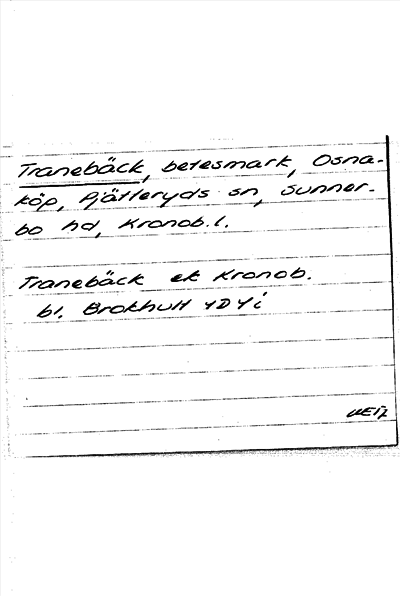 Tranebäck, betesmark, Osna-
köp, Pjätteryds sn, Sunner-
bo hd, Kronob. l.
Tranebäck ek Kronob.
bl. Brokhult 4D4i